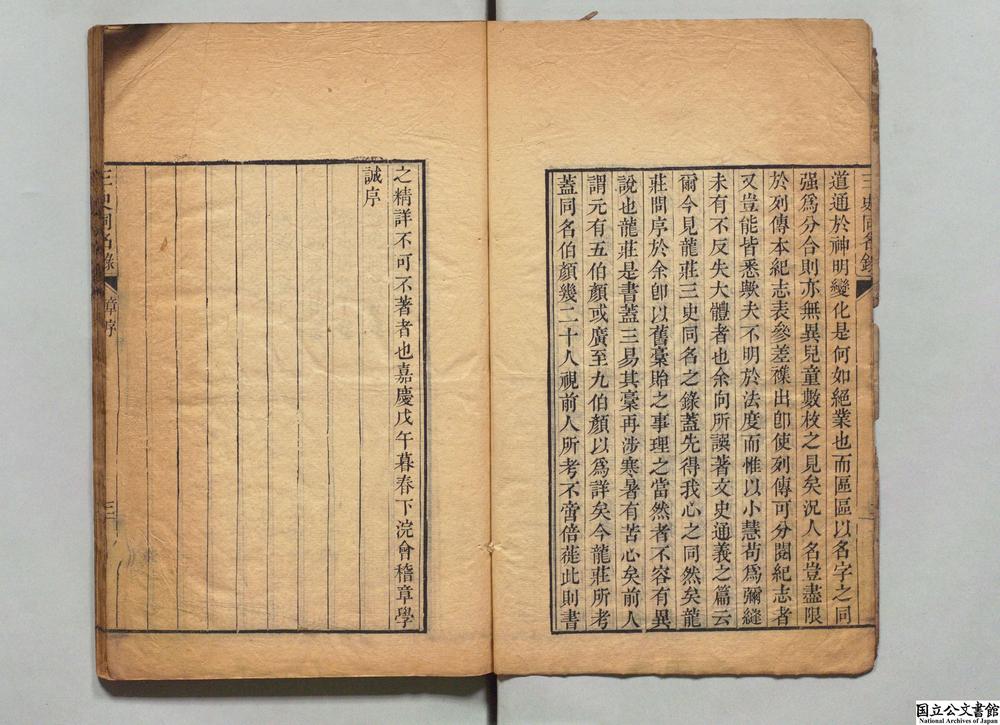 道通於神明變化是何如絕業也而區區以名字之同
强爲分合則亦無異兒童數枚之見矣況人名豈盡限
於列傳本紀志表參差襍出卽使列傳可分閱紀志者
又豈能皆悉歟夫不明於法度而惟以小慧苟爲彌縫
未有不反失大體者也余向所譔著文史通義之篇云
爾今見龍莊三史同名之錄蓋先得我心之同然矣龍
莊問序於余卽以舊稾貽之事理之當然者不容有異
說也龍莊是書蓋三易其稾再涉寒暑有苦心矣前人
謂元有五伯顏或廣至九伯顏以爲詳矣今龍莊所考
蓋同名伯顏幾二十人視前人所考不啻倍蓰此則書
之精詳不可不著者也嘉慶戊午暮春下浣會稽章學
誠序
三史同名錄
章序
三
国立公文書館
National Archives of Japan